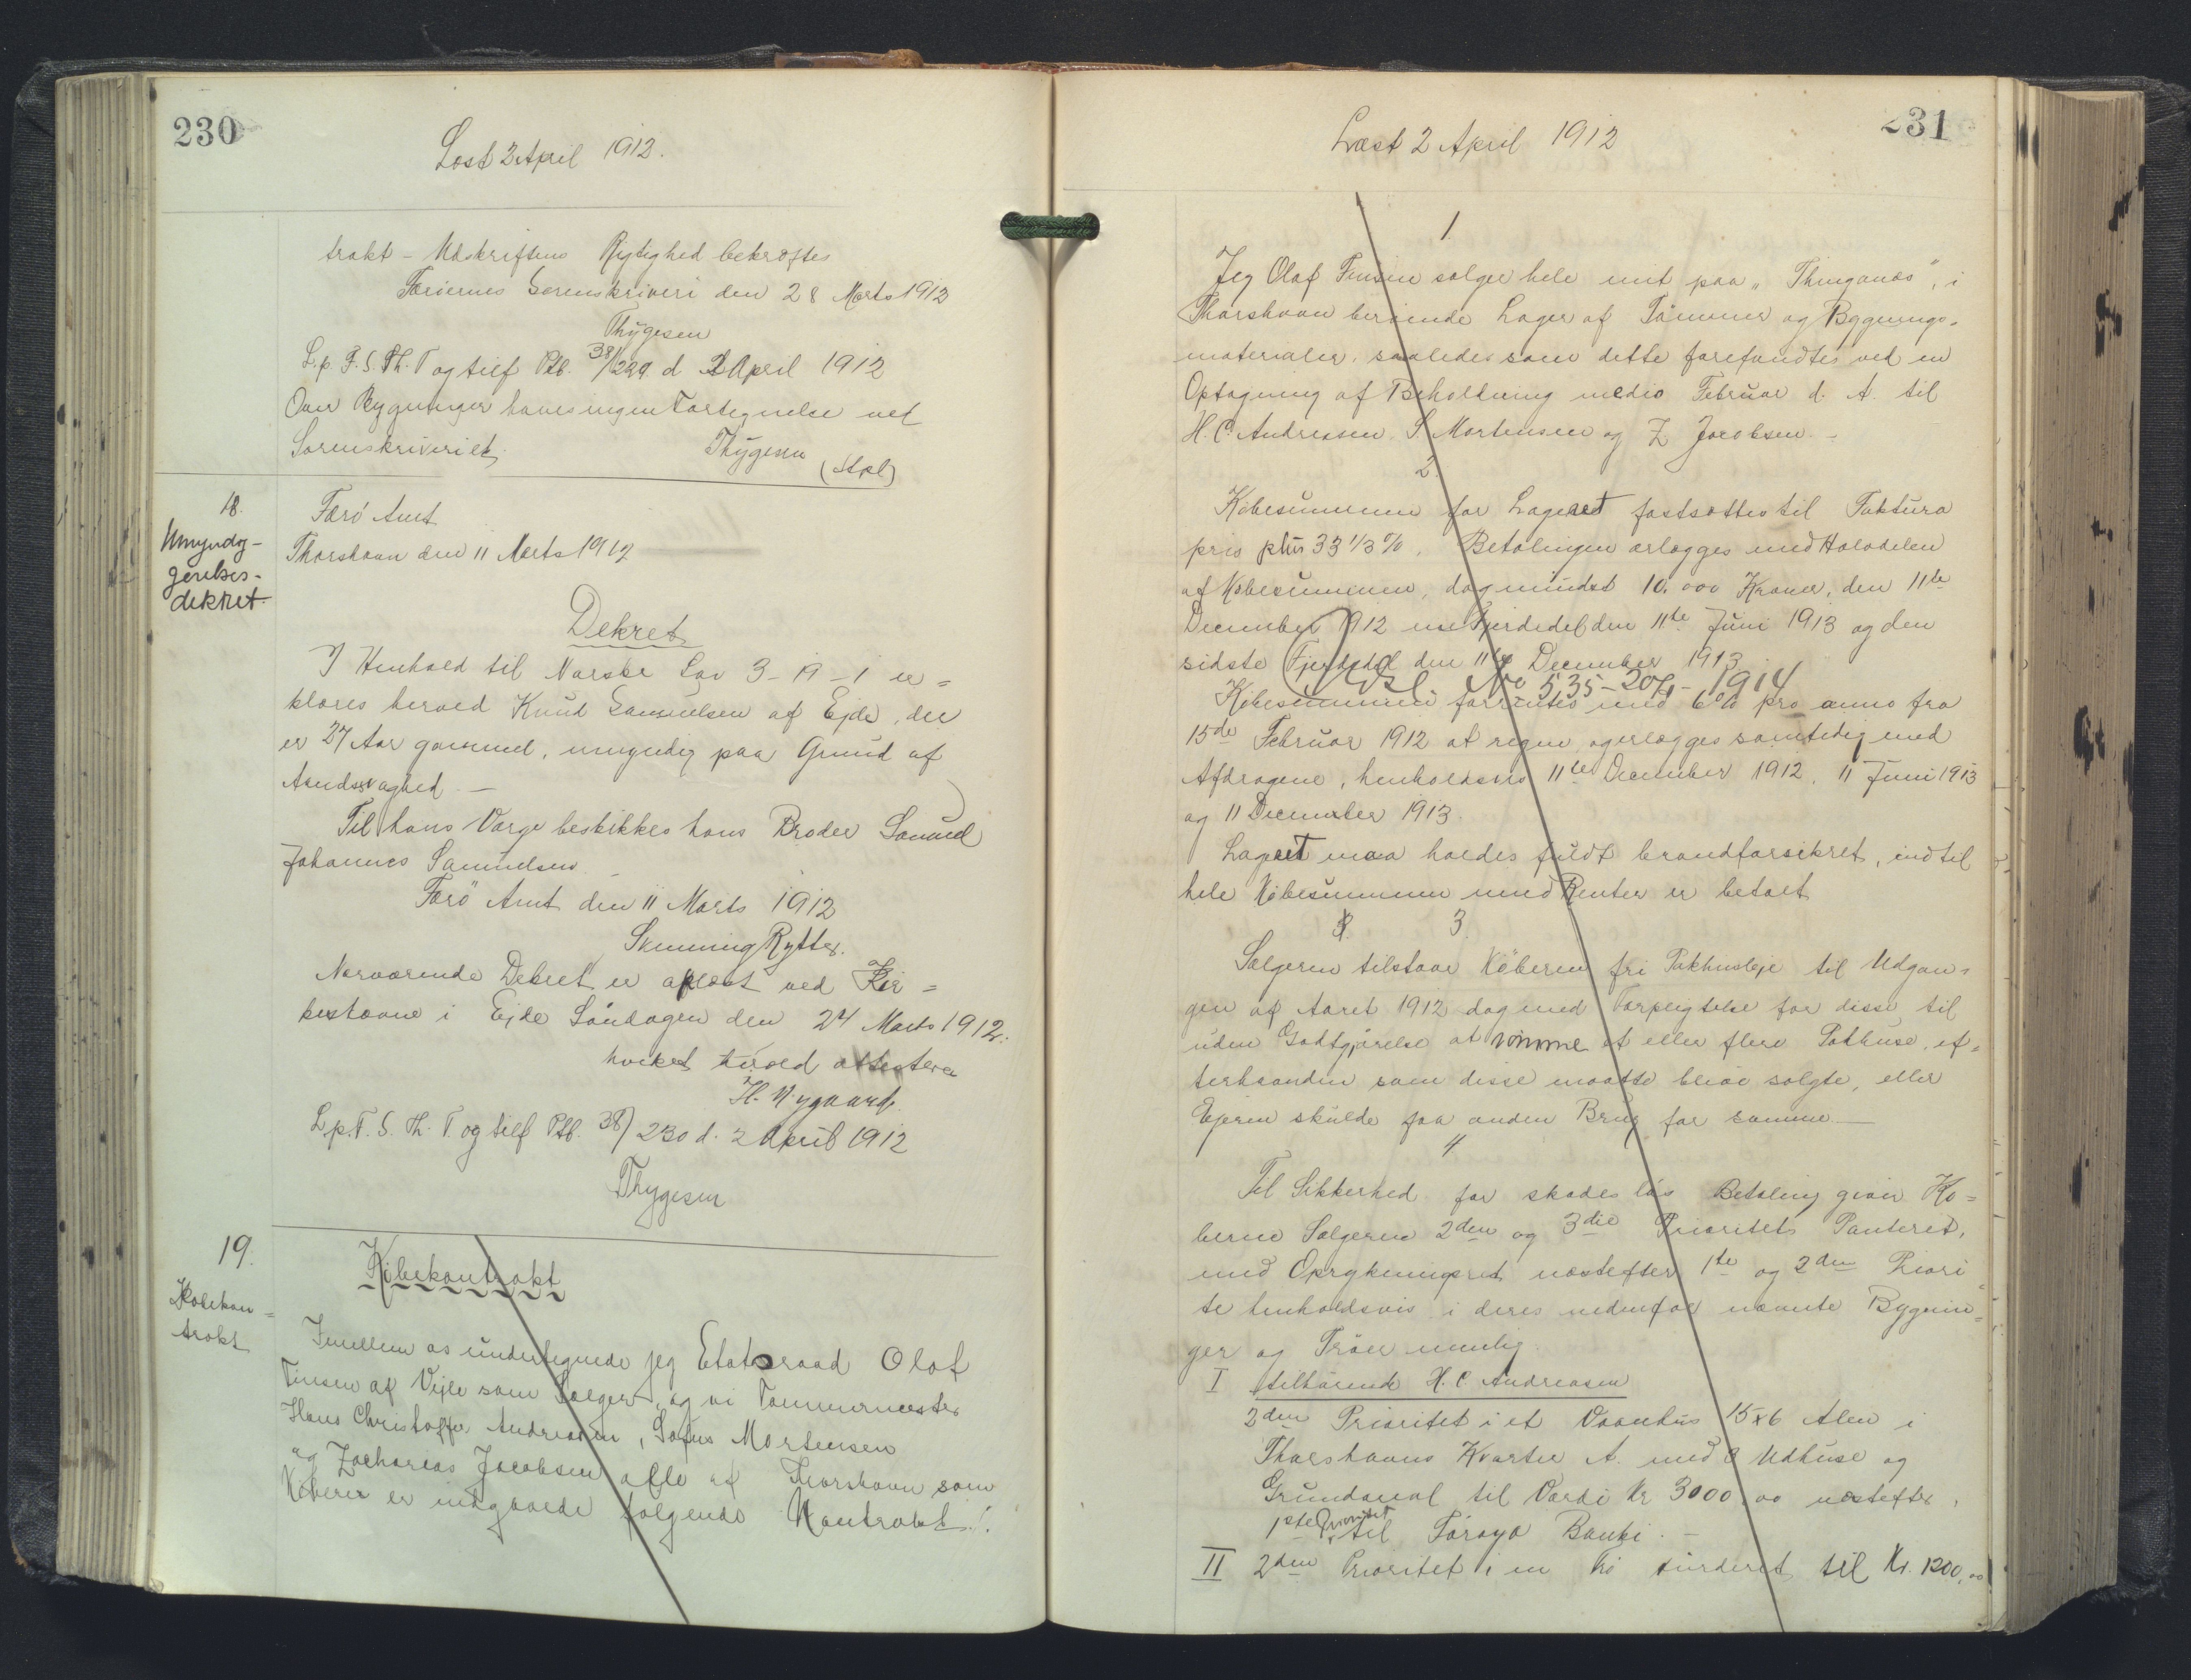 230
Læst 2 April 1912.
trakt - Udskriftens Rigtighed bekræftes
Færøernes Sorenskriveri den 28 Marts 1912
Thygesen
L.p. F. S. Th. T og tilf Ptb. 38/229. d 2 April 1912
Over Bygninger haves ingen Fortegnelse ved
Sorenskriveriet.
Thygesen
(Stpl)
18.
Umyndig-
gørelses-
dekret.
Færö Amt
Thorshavn den 11 Marts 1912
Dekret
I Henhold til Norske Lov 3-19-1 er=
klæres herved Knud Samuelsen af Ejde, der
er 27 Aar gammel, umyndig paa Grund af
Aandssvaghed. -
Til hans Værge beskikkes hans Broder Samuel
Johannes Samuelsen
Færö Amt den 11 Marts 1912
Svenning Rytter.
Nærværende Dekret er oplæst ved Kir=
kestævne i Ejde Søndagen den 24 Marts 1912.
hvilket herved attesteres
H. Nygaard.
L.p. F. S. Th. T. og tilf Ptb. 38/230 d. 2 April 1912
Thygesen
19.
Købekon=
trakt
Købekontrakt
Imellem os undertegnede jeg Etatsraad Olaf
Finsen af Vejle som Sælger, og vi Tømmermester
Hans Christoffer Andreasen, Sofus Mortensen
og Zacharias Jacobsen alle af Thorshavn som
Købere er indgaaede følgende Kontrakt.!.
231
Læst 2 April 1912
1
Jeg Olaf Finsen sælger hele mit paa "Thinganæs", i
Thorshavn beroende Lager af Tömmer og Bygnings=
materialer, saaledes som dette forefandtes ved en
Optagning af Beholdning medio Februar d. A. til
H. C. Andreasen, S Mortensen og Z Jacobsen. -
2.
Købesummen for Lageret fastsættes til Faktura
pris plus 33 1/3 %. Betalingen erlægges med Halvdelen
af Købesummen, dog mindst 10.000 Kroner, den 11te
December 1912 en Fjerdedel den 11te Juni 1913 og den
sidste Fjerdedel den 11te December 1913
No 535-20/1-1914
Købesummen forrentes med 6 % pro anno fra
15de Februar 1912 at regne, og erlægges samtidig med
Afdragene, henholdsvis 11te December 1912, 11 Juni 1913
og 11 December 1913.
Lageret maa holdes fuldt brandforsikret, indtil
hele Købesummen med Renter er betalt
3.
Sælgeren tilstaar Köberen fri Pakhusleje til Udgan=
gen af Aaret 1912 dog med Forpligtelse for disse til
uden Godtgjørelse at römme et eller flere Pakhuse, ef=
terhaanden som disse maatte blive solgte, eller
Ejeren skulde faa anden Brug for samme. -
4
Til Sikkerhed for skadeslös Betaling giver Kö=
berne Sælgeren 2den og 3die Prioritets Panteret,
med Oprykningsret næstefter 1te og 2den Priori=
tet henholdsvis i deres nedenfor nævnte Bygnin=
ger og Tröer nemlig.
I tilhørende H. C. Andreasen
2den Prioritet i et Vaanhus 15x6 Alen i
Thorshavns Kvarter A. med 2 Udhuse og
Grundareal til Værdi Kr 3000,00 næstefter,
1ste Prioritet til Föroya Banki. -
II 2den Prioritet i en Trö vurderet til Kr. 1200,00